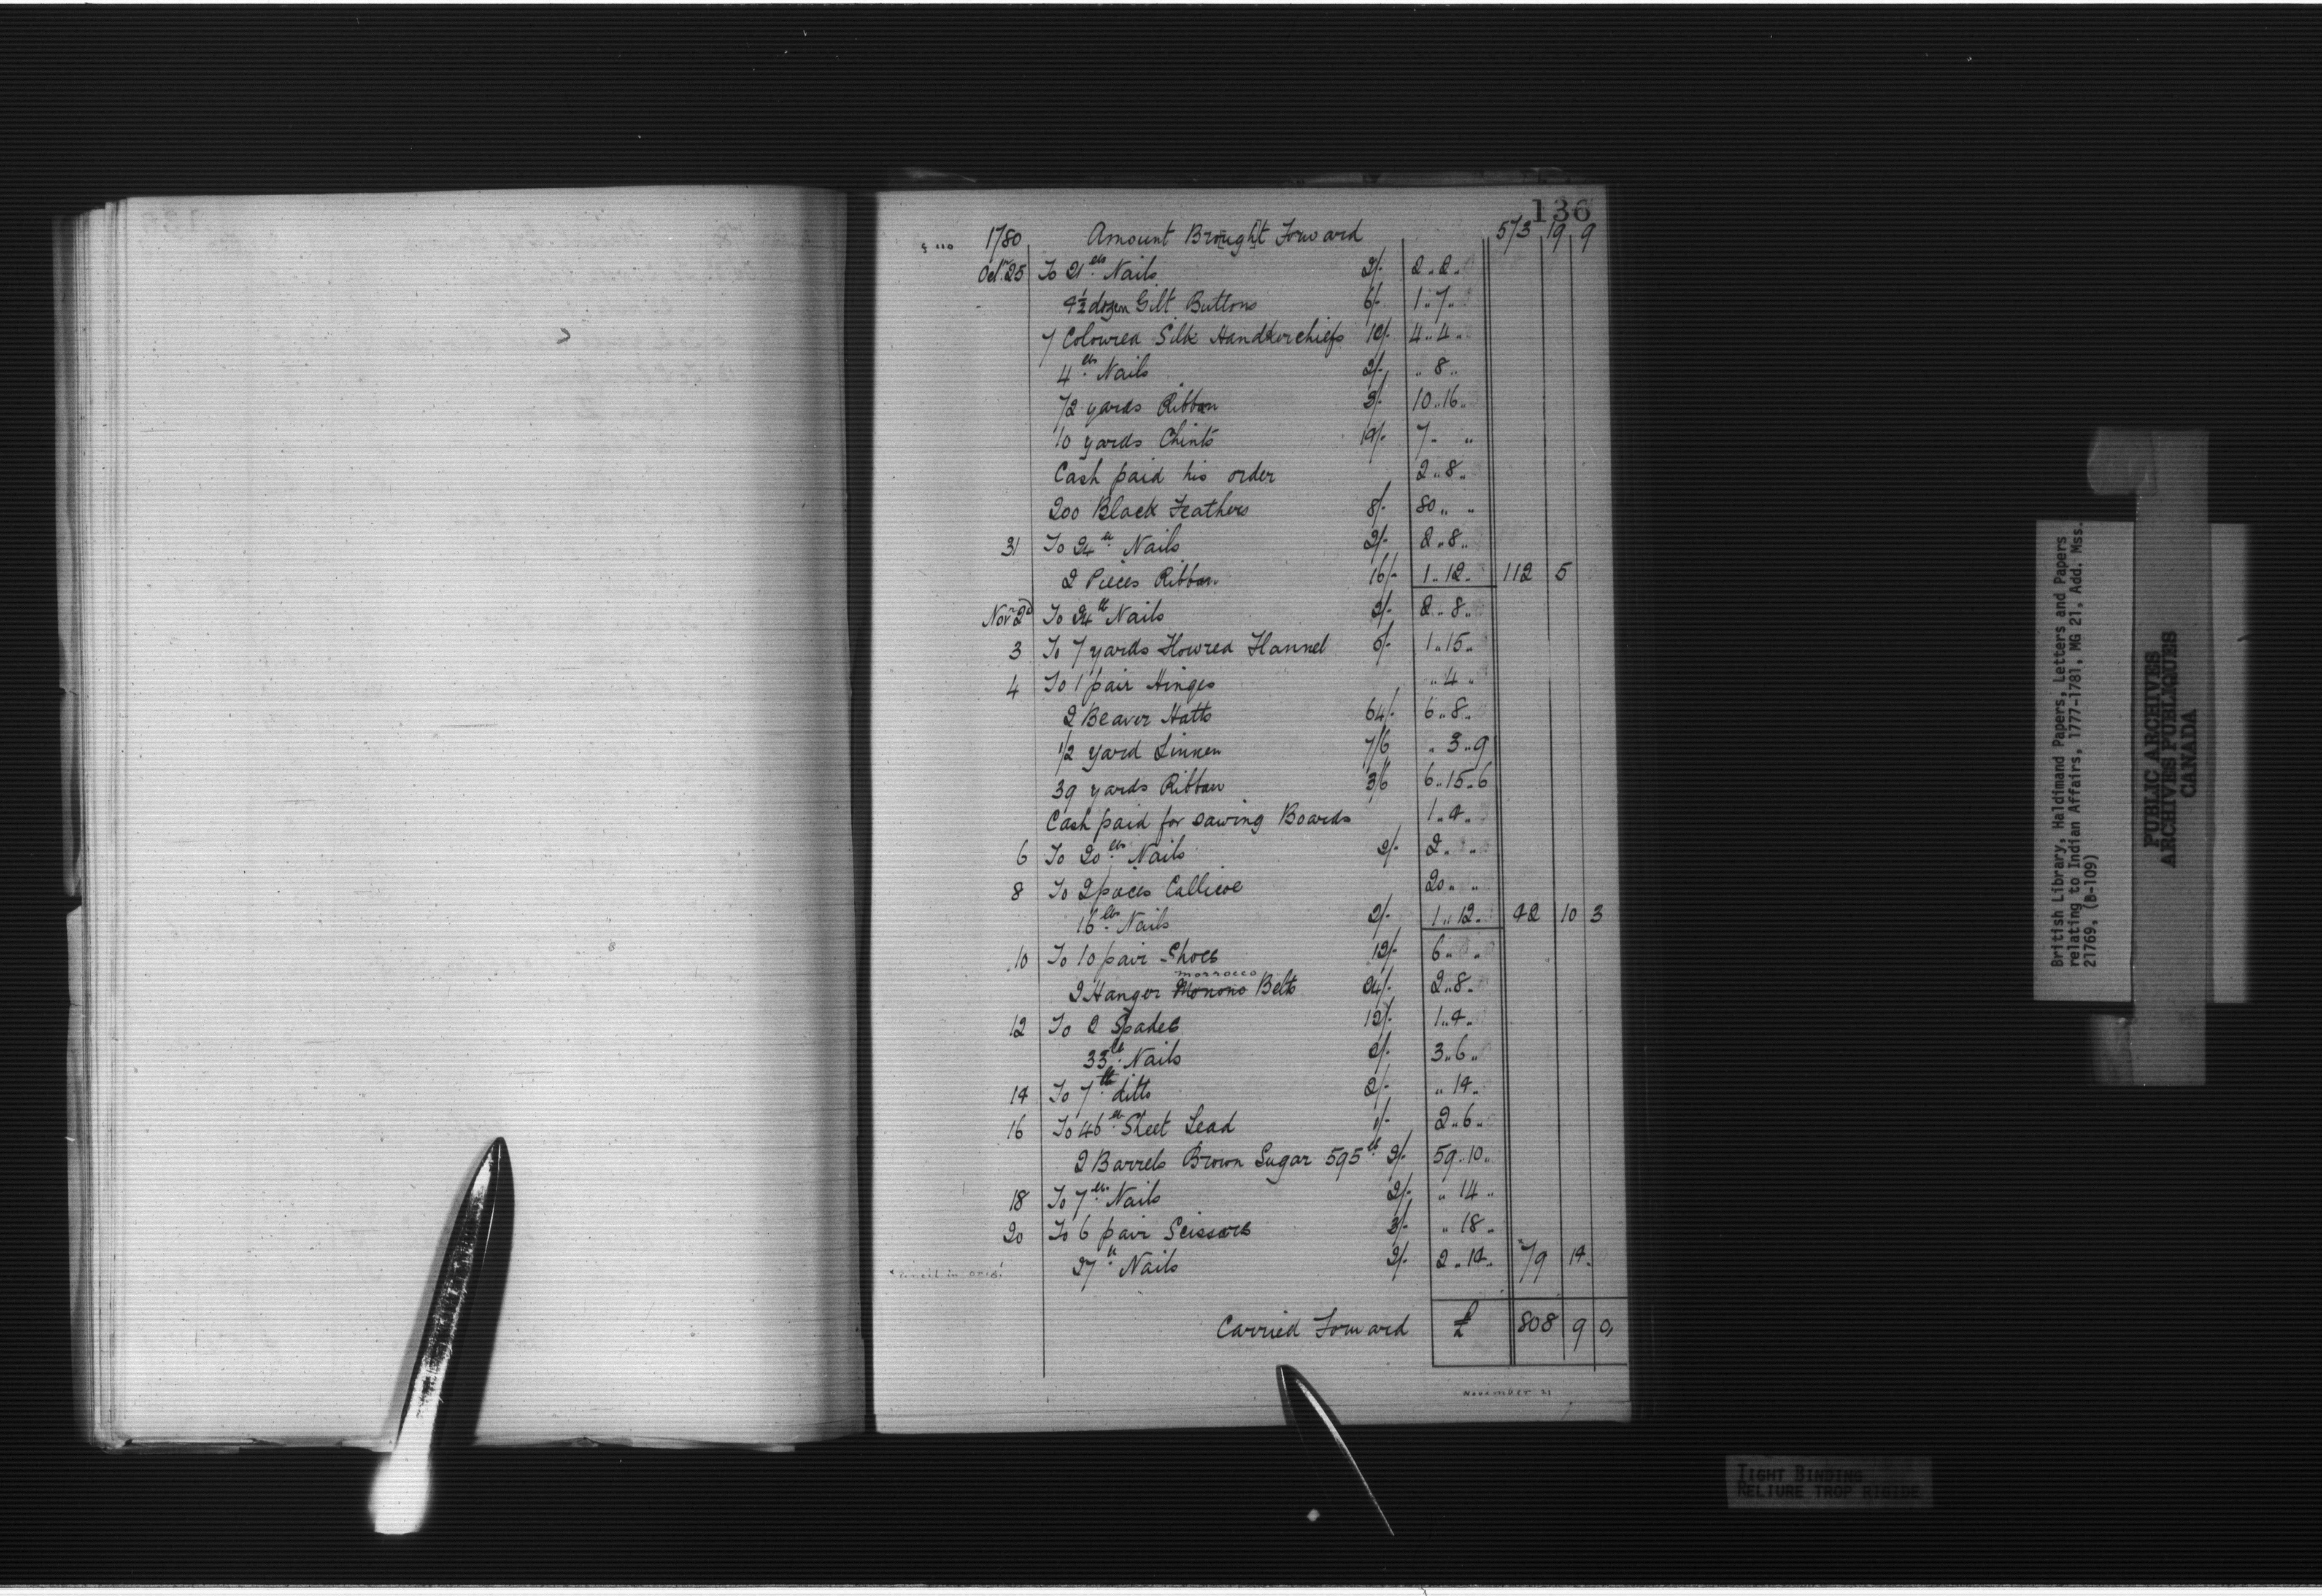 136
1780 Amount Brought Forward 573 19 9
Octr 25 To 21 lbs Nails 2/- 2..2..
4½ dozen Gilt Buttons 6/- 1..7..
7 Coloured Silk Handkerchiefs 12/- 4..4..
4 lbs Nails 2/- .. 8..
72 yards Ribban 3/- 10..16..
10 yards Chints 14/- 7.. ..
Cash paid his order 2..8..
200 Black Feathers 8/- 80.. ..
31 To 24 lb Nails 2/- 2..8..
2 Pieces Ribban 16/- 1..12.. 112 5
Novr 2d To 24 lb Nails 2/- 2..8..
3 To 7 yards Flowred Flannel 5/- 1..15..
4 To 1 pair Hinges .. 4 ..
2 Beaver Hatts 64/- 6..8..
1/2 yard Linnen 7/6 .. 3..9
39 yards Ribban 3/6 6..15..6
Cash paid for sawing Boards 1..4..
6 To 20 lbs Nails 2/- 2.. ..
8 To 2 pieces Callicoe 20.. ..
16 lbs Nails 2/- 1..12.. 42 10 3
10 To 10 pair Shoes 12/- 6.. ..
morrocco
2 Hanger Monono Belts 24/- 2..8..
12 To 2 Spades 12/- 1..4..
33 lb Nails 2/- 3..6..
14 To 7 lb ditto 2/- .. 14..
16 To 46 lb Sheet Lead 1/- 2..6..
2 Barrels Brown Sugar 595 lb 2/- 59..10..
18 To 7 lbs Nails 2/- .. 14 ..
20 To 6 pair Scissars 3/- .. 18 ..
27 lb Nails 2/- 2..14.. 79 14.
Carried Forward £ 808 9 0
November 21
British Library, Haldimand Papers, Letters and Papers
relating to Indian Affairs, 1777-1781, MG 21, Add. Mss.
21769, (B-109)
PUBLIC ARCHIVES
ARCHIVES PUBLIQUES
CANADA
TIGHT BINDING
RELIURE TROP RIGIDE